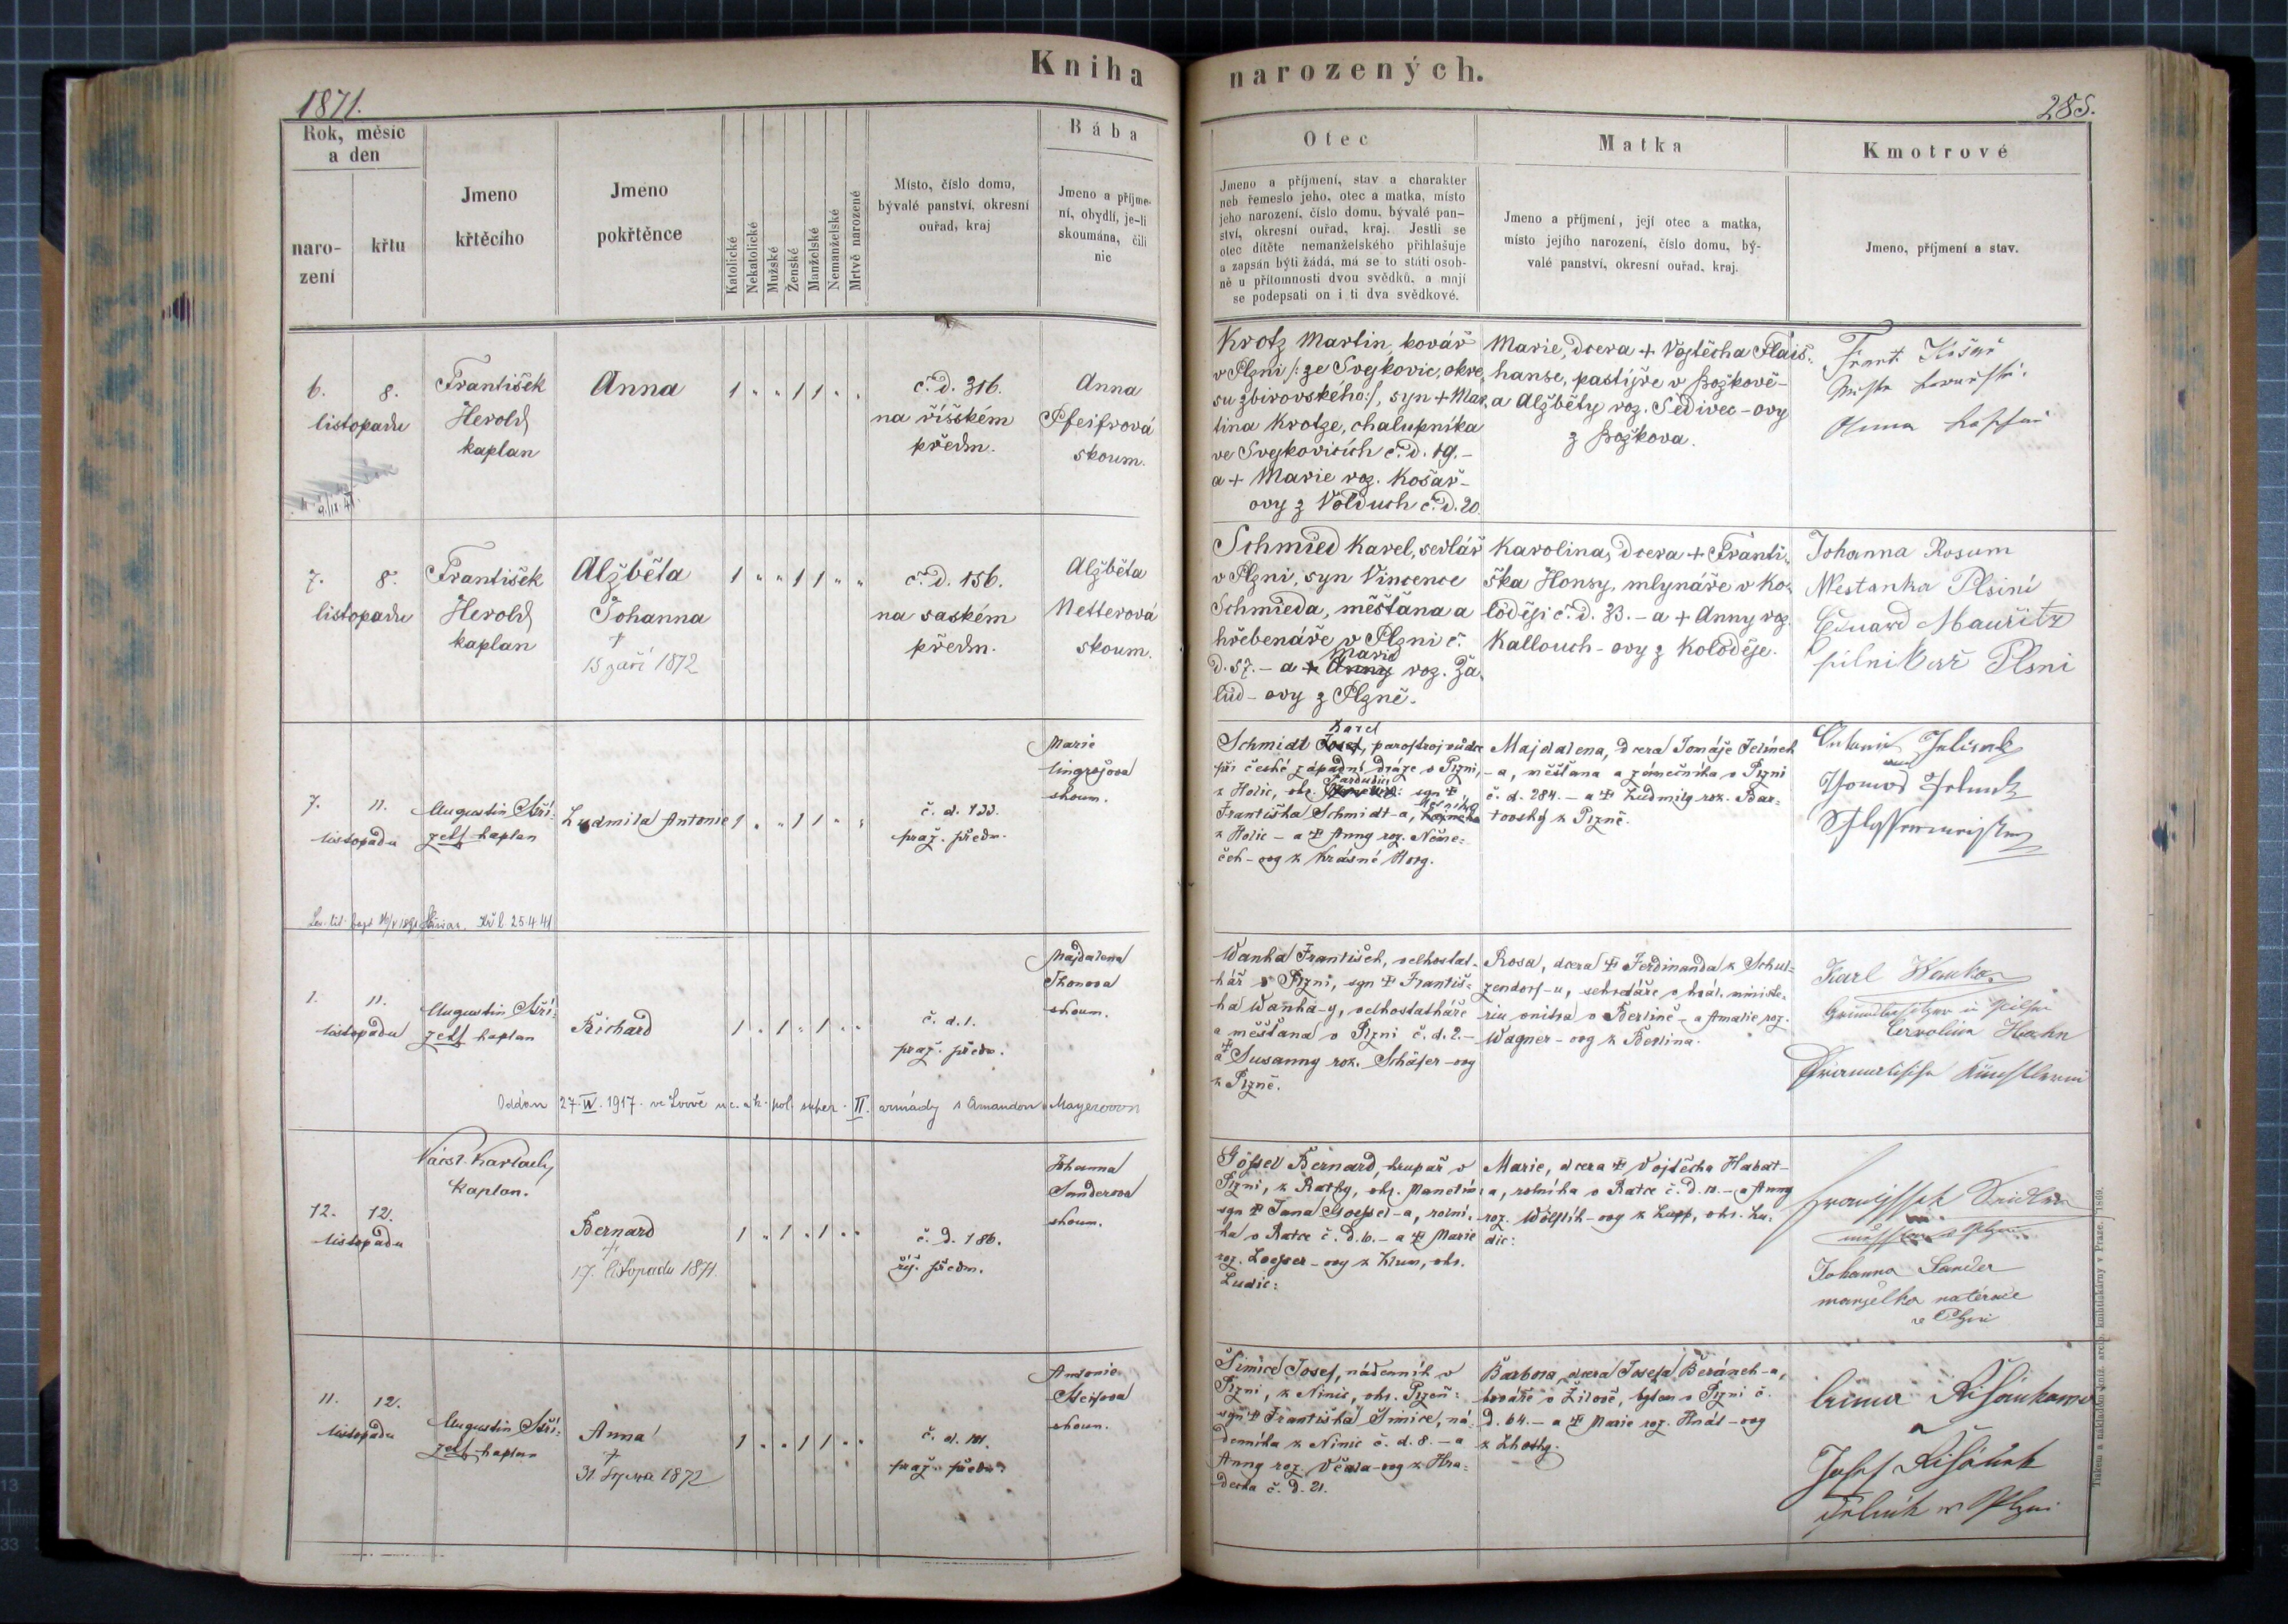 Kniha narozených.
1871.
285.
Rok, měsíc
a den
naro-
zení
křtu
Jmeno
křtěcího
Jmeno
pokřtěnce
Katolické
Nekatolické
Mužské
Ženské
Manželské
Nemanželské
Mrtvě narozené
Místo, číslo domu,
bývalé panství, okresní
ouřad, kraj
Bába
Jmeno a příjme-
ní, obydlí, je-li
skoumána, čili
nic
Otec
Jmeno a příjmení, stav a charakter
neb řemeslo jeho, otec a matka, místo
jeho narození, číslo domu, bývalé pan-
ství, okresní ouřad, kraj. Jestli se
otec dítěte nemanželského přihlašuje
a zapsán býti žádá, má se to státi osob-
ně u přítomnosti dvou svědků, a mají
se podepsati on i ti dva svědkové.
Matka
Jmeno a příjmení, její otec a matka,
místo jejího narození, číslo domu, bý-
valé panství, okresní ouřad, kraj.
Kmotrové
Jmeno, příjmení a stav.
6. 8.
listopadu
František
Herold
kaplan
Anna
1 „ „ 1 1 „ „
č. d. 316.
na říšském
předm.
Anna
Pfeifrová
skoum.
Krotz Martin, kovář
v Plzni /: ze Svejkovic, okre-
su zbirovského :/, syn + Mar-
tina Krotze, chalupníka
ve Svejkovicích č. d. 19. –
a + Marie roz. Košař-
ovy z Volduch č. d. 20.
Marie, dcera + Vojtěcha Flaiš-
hanse, pastýře v Božkově –
a Alžběty roz. Šedivec-ovy
z Božkova.
7. 8.
listopadu
František
Herold
kaplan
Alžběta
Johanna
†
15 září 1872
1 „ „ 1 1 „ „
č. d. 156.
na saském
předm.
Alžběta
Netterová
skoum.
Schmied Karel, sedlář
v Plzni, syn Vincence
Schmieda, měšťana a
hřebenáře v Plzni č.
d. 57. – a + Anny Marie roz. Ža-
lud-ovy z Plzně.
Karolina, dcera + Franti-
ška Honsy, mlynáře v Ko-
loději č. d. 33. – a + Anny roz.
Kallouch-ovy z Koloděje.
Johanna Rosum
Mestanka Plsini
Eduard Mauritz
pilnikař Plsni
7. 11.
listopadu
Augustin Stří-
zelf kaplan
Ludmila Antonie
1 „ „ 1 1 „ „
č. d. 133.
praž. předm.
Marie
skoum.
Schmidt Josef Karel, parostrojvůdce
při české západní dráze v Plzni,
z Holic, okr. Pardubic: syn +
Františka Schmidt-a,
z Holic – a + Anny roz. Něme-
ček-ovy z Krásné Hory.
Majdalena, dcera Tomáše Jelínek
-a, měšťana a zámečníka v Plzni
č. d. 284. – a + Ludmily roz. Bar-
tovský z Plzně.
25.4.41
1. 11.
listopadu
Augustin Stří-
zelf kaplan
Richard
1 „ 1 „ 1 „ „
č. d. 1.
praž. předm.
Majdalena
Thonova
skoum.
Wanka František, velkostat-
kář v Plzni, syn + Františ-
ka Wanka-y, velkostatkáře
a měšťana v Plzni č. d. 2. –
a + Susanny roz. Schäfer-ovy
z Plzně.
Rosa, dcera + Ferdinanda z Schul-
zendorf-u, sekretáře v král. ministe-
riu vnitra v Berlíně – a Amalie roz.
Wagner-ovy z Berlina.
Karl Wanka
Grundbesitzer in Pilsen
Carolina Hahn
Dramatische Künstlerin
Oddán 27. IV. 1917. ve Lvově u c. a k. pol. super. II. armády s Amandou Mayerovou
Václ. Karlach
kaplan.
12. 12.
listopadu
Bernard
†
17. listopadu 1871.
1 „ 1 „ 1 „ „
č. d. 186.
říš. předm.
Johanna
Sanderova
skoum.
Gössel Bernard, krupař v
Plzni, z Ratky, okr. Manetín:
syn + Jana Goessel-a, rolní-
ka v Ratce č. d. 6. – a + Marie
roz. Loesser-ovy z Klum, okr.
Ludic:
Marie, dcera + Vojtěcha Habat-
a, rolníka v Ratce č. d. 10. – a Anny
roz. Wölflik-ovy z Lupp, okr. Lu-
dic:
Johanna Sander
manželka natěrače
v Plzni
11. 12.
listopadu
Augustin Stří-
zelf kaplan
Anna
†
31 srpna 1872
1 „ „ 1 1 „ „
č. d. 101.
praž. předm.
Antonie
skoum.
Šimice Josef, nádenník v
Plzni, z Ninic, okr. Plzeň:
syn + Františka Šimice, ná-
denníka z Ninic č. d. 8. – a
Anny roz. Včala-ovy z Hra-
decka č. d. 21.
Barbora dcera Josefa Beránek-a,
kováře v Žilově, bytem v Plzni č.
d. 64. – a + Marie roz. Hnát-ovy
z Lhotky.
Josef Řišánek
Tiskem a nákladem kníž. arcib. knihtiskárny v Praze. 1869.